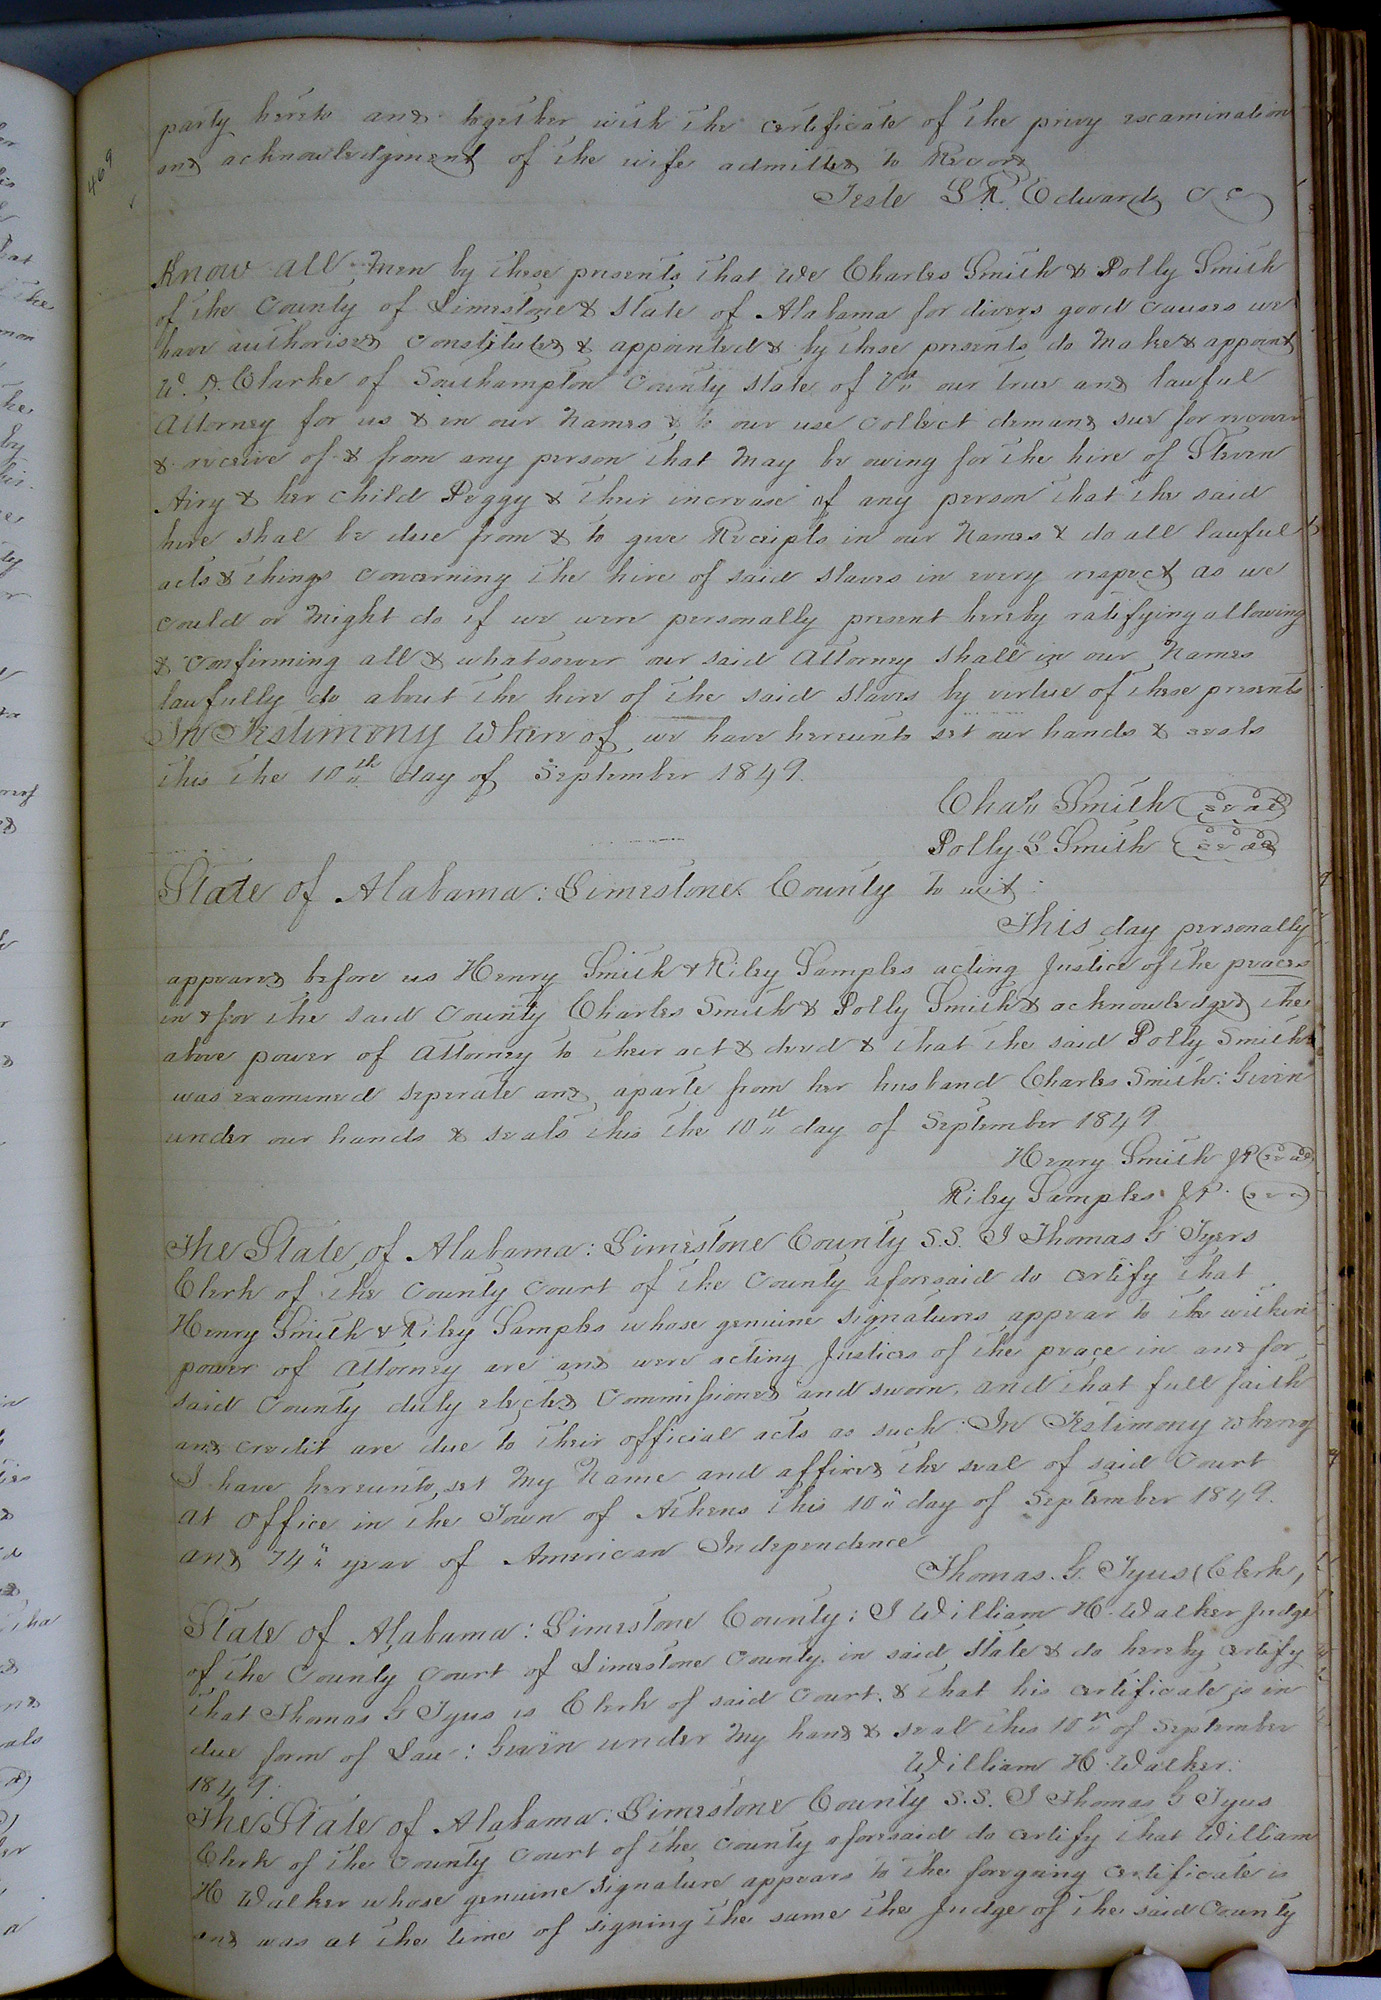 469
party hereto and together with the certificate of the privy examination
and acknowledgment of the wife admitted to Record
Teste L R Edwards C C
Know all Men by these presents that we Charles Smith & Polly Smith
of the County of Limestone & State of Alabama for divers good causes we
have authorised constituted & appointed & by these presents do Make & appoint
W. A. Clarke of Southampton County State of Va our true and lawful
Attorney for us & in our Names & to our use collect demand sue for recover
& receive of & from any person that may be owing for the hire of Steven
Airy & her child Peggy & their increase of any person that the said
hire shal be due from & to give Receipts in our Names & do all lawful
acts & things concerning the hire of said slaves in every respect as we
could or Might do if we were personally present hereby ratifying allowing
& confirming all & whatsoever our said Attorney shall in our Names
lawfully do about the hire of the said slaves by virtue of these presents
In Testimony Where of we have hereunto set our hands & seals
this the 10th day of September 1849.
Chas Smith seal
Polly S Smith seal
State of Alabama: Limestone County to wit:
This day personally
appeared before us Henry Smith & Riley Samples acting Justice of the peaces
in & for the said County Charles Smith & Polly Smith & acknowledged the
above power of Attorney to their act & deed & that the said Polly Smith
was examined seperate and aparte from her husband Charles Smith: Given
under our hands & seals this the 10th day of September 1849
Henry Smith JP seal
Riley Samples J.P. seal
The State of Alabama: Limestone County S.S. I Thomas G Tyers
Clerk of the County Court of the County aforesaid do certify that
Henry Smith & Riley Samples whose genuine signatures appear to the within
power of Attorney are and were acting Justices of the peace in and for
said County duly elected Commissioned and sworn, and that full faith
and credit are due to their official acts as such. In Testimony whereof
I have hereunto set My Name and affixed the seal of said Court
at office in the Town of Athens this 10" day of September 1849.
and 74" year of American Independence
Thomas. G. Tyus, Clerk,
State of Alabama: Limestone County: I William H. Walker Judge
of the County Court of Limestone County in said State & do hereby certify
that Thomas G Tyus is Clerk of said Court, & that his certificate is in
due form of Law: Given under My hand & seal this 10th of September
1849. William H. Walker.
The State of Alabama: Limestone County S.S. I Thomas G Tyus
Clerk of the County Court of the County aforesaid do certify that William
H Walker whose genuine signature appears to the foregoing certificate is
and was at the time of signing the same the Judge of the said County